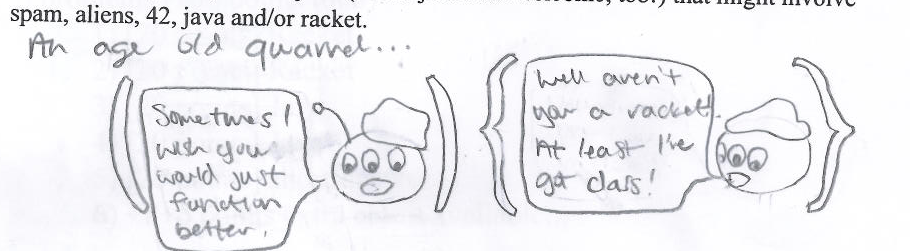 too!) that might involve
spam, aliens, 42, java and/or racket.
An age old quarrel...
Sometimes I
wish you
would just
function
better.
Well aren't
you a racket!
At least I've
got class!